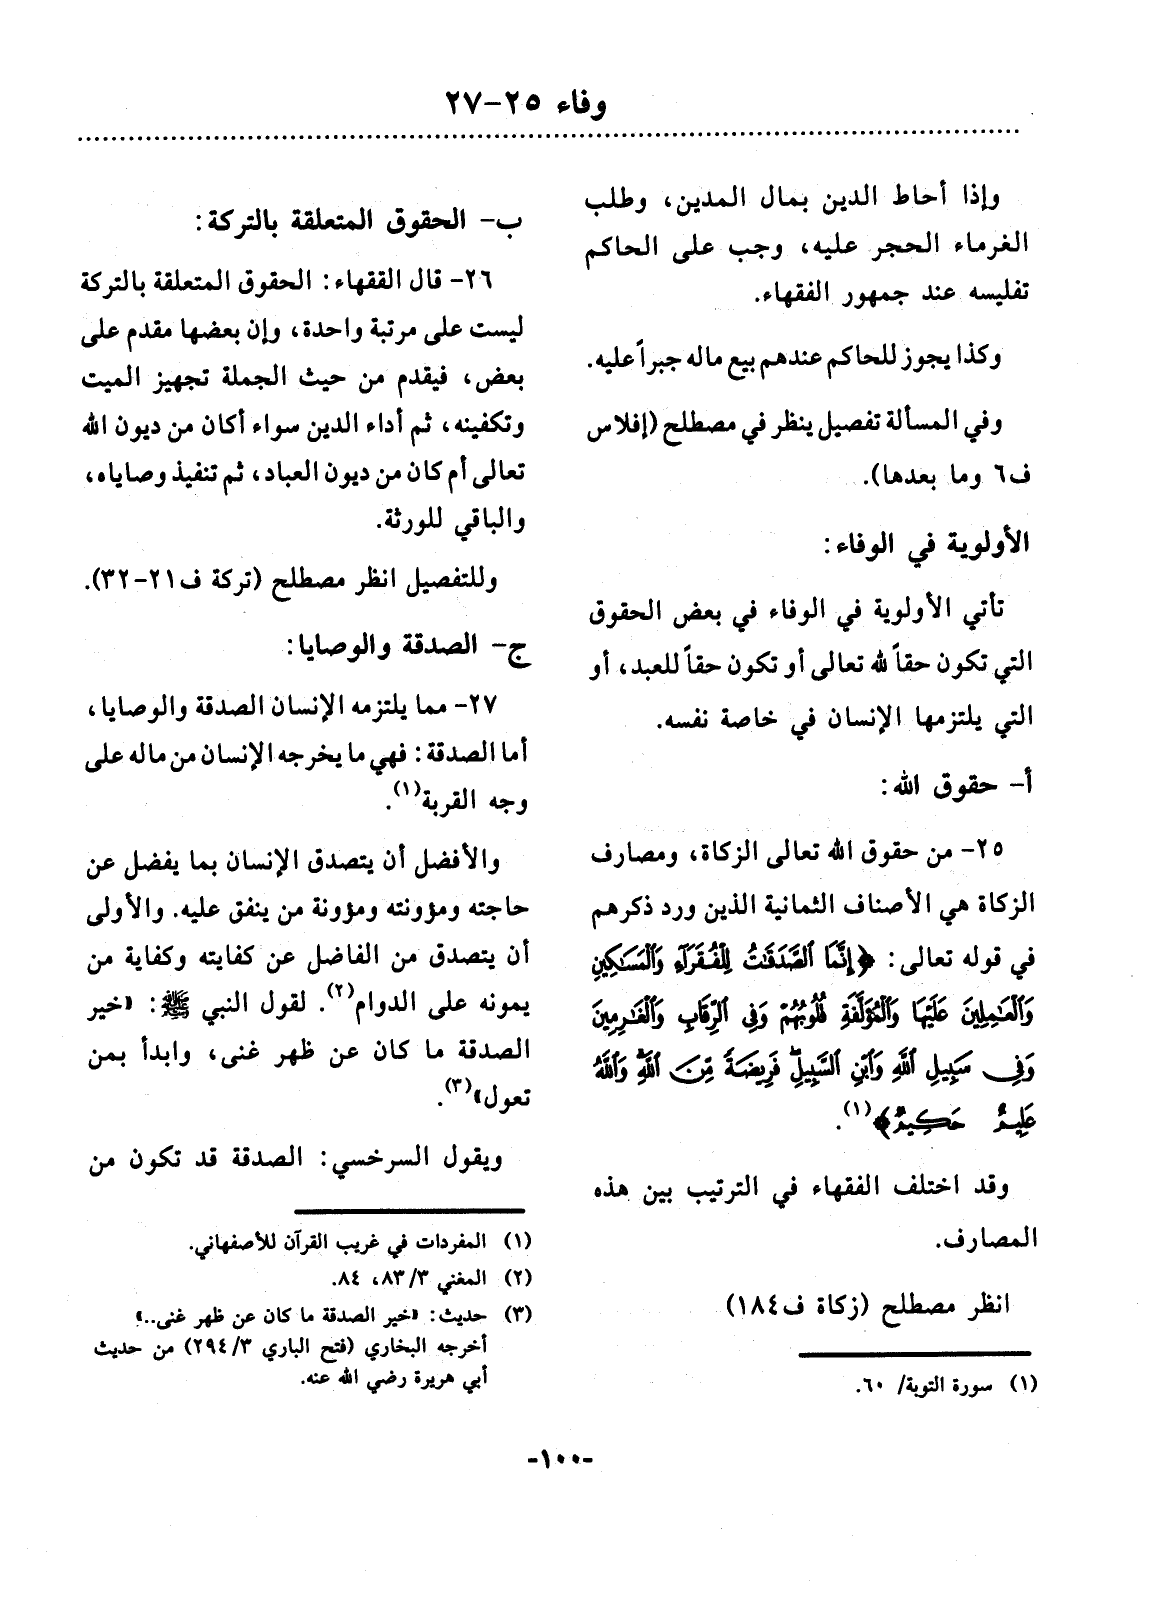 وفاء ٢٥-٢٧
وإذا أحاط الدين بمال المدين، وطلب
الغرماء الحجر عليه، وجب على الحاكم
تفليسه عند جمهور الفقهاء.
وكذا يجوز للحاكم عندهم بيع ماله جبراً عليه.
وفي المسألة تفصيل ينظر في مصطلح (إفلاس
ف٦ وما بعدها).
الأولوية في الوفاء:
تأتي الأولوية في الوفاء في بعض الحقوق
التي تكون حقاً لله تعالى أو تكون حقاً للعبد، أو
التي يلتزمها الإنسان في خاصة نفسه.
أ- حقوق الله:
٢٥- من حقوق الله تعالى الزكاة، ومصارف
الزكاة هي الأصناف الثمانية الذين ورد ذكرهم
في قوله تعالى: ﴿إِنَّمَا ٱلصَّدَقَٰتُ لِلْفُقَرَآءِ وَٱلْمَسَٰكِينِ
وَٱلْعَٰمِلِينَ عَلَيْهَا وَٱلْمُؤَلَّفَةِ قُلُوبُهُمْ وَفِى ٱلرِّقَابِ وَٱلْغَٰرِمِينَ
وَفِى سَبِيلِ ٱللَّهِ وَٱبْنِ ٱلسَّبِيلِ ۖ فَرِيضَةً مِّنَ ٱللَّهِ ۗ وَٱللَّهُ
عَلِيمٌ حَكِيمٌ﴾(١).
وقد اختلف الفقهاء في الترتيب بين هذه
المصارف.
انظر مصطلح (زكاة ف١٨٤)
(١) سورة التوبة/ ٦٠.
ب- الحقوق المتعلقة بالتركة:
٢٦- قال الفقهاء: الحقوق المتعلقة بالتركة
ليست على مرتبة واحدة، وإن بعضها مقدم على
بعض، فيقدم من حيث الجملة تجهيز الميت
وتكفينه، ثم أداء الدين سواء أكان من ديون الله
تعالى أم كان من ديون العباد، ثم تنفيذ وصاياه،
والباقي للورثة.
وللتفصيل انظر مصطلح (تركة ف٢١-٣٢).
ج- الصدقة والوصايا:
٢٧- مما يلتزمه الإنسان الصدقة والوصايا،
أما الصدقة: فهي ما يخرجه الإنسان من ماله على
وجه القربة(١).
والأفضل أن يتصدق الإنسان بما يفضل عن
حاجته ومؤونته ومؤونة من ينفق عليه. والأولى
أن يتصدق من الفاضل عن كفايته وكفاية من
يمونه على الدوام(٢). لقول النبي ﷺ: «خير
الصدقة ما كان عن ظهر غنى، وابدأ بمن
تعول»(٣).
ويقول السرخسي: الصدقة قد تكون من
(١) المفردات في غريب القرآن للأصفهاني.
(٢) المغني ٣/ ٨٣، ٨٤.
(٣) حديث: «خير الصدقة ما كان عن ظهر غنى..»
أخرجه البخاري (فتح الباري ٣/ ٢٩٤) من حديث
أبي هريرة رضي الله عنه.
-١٠٠-